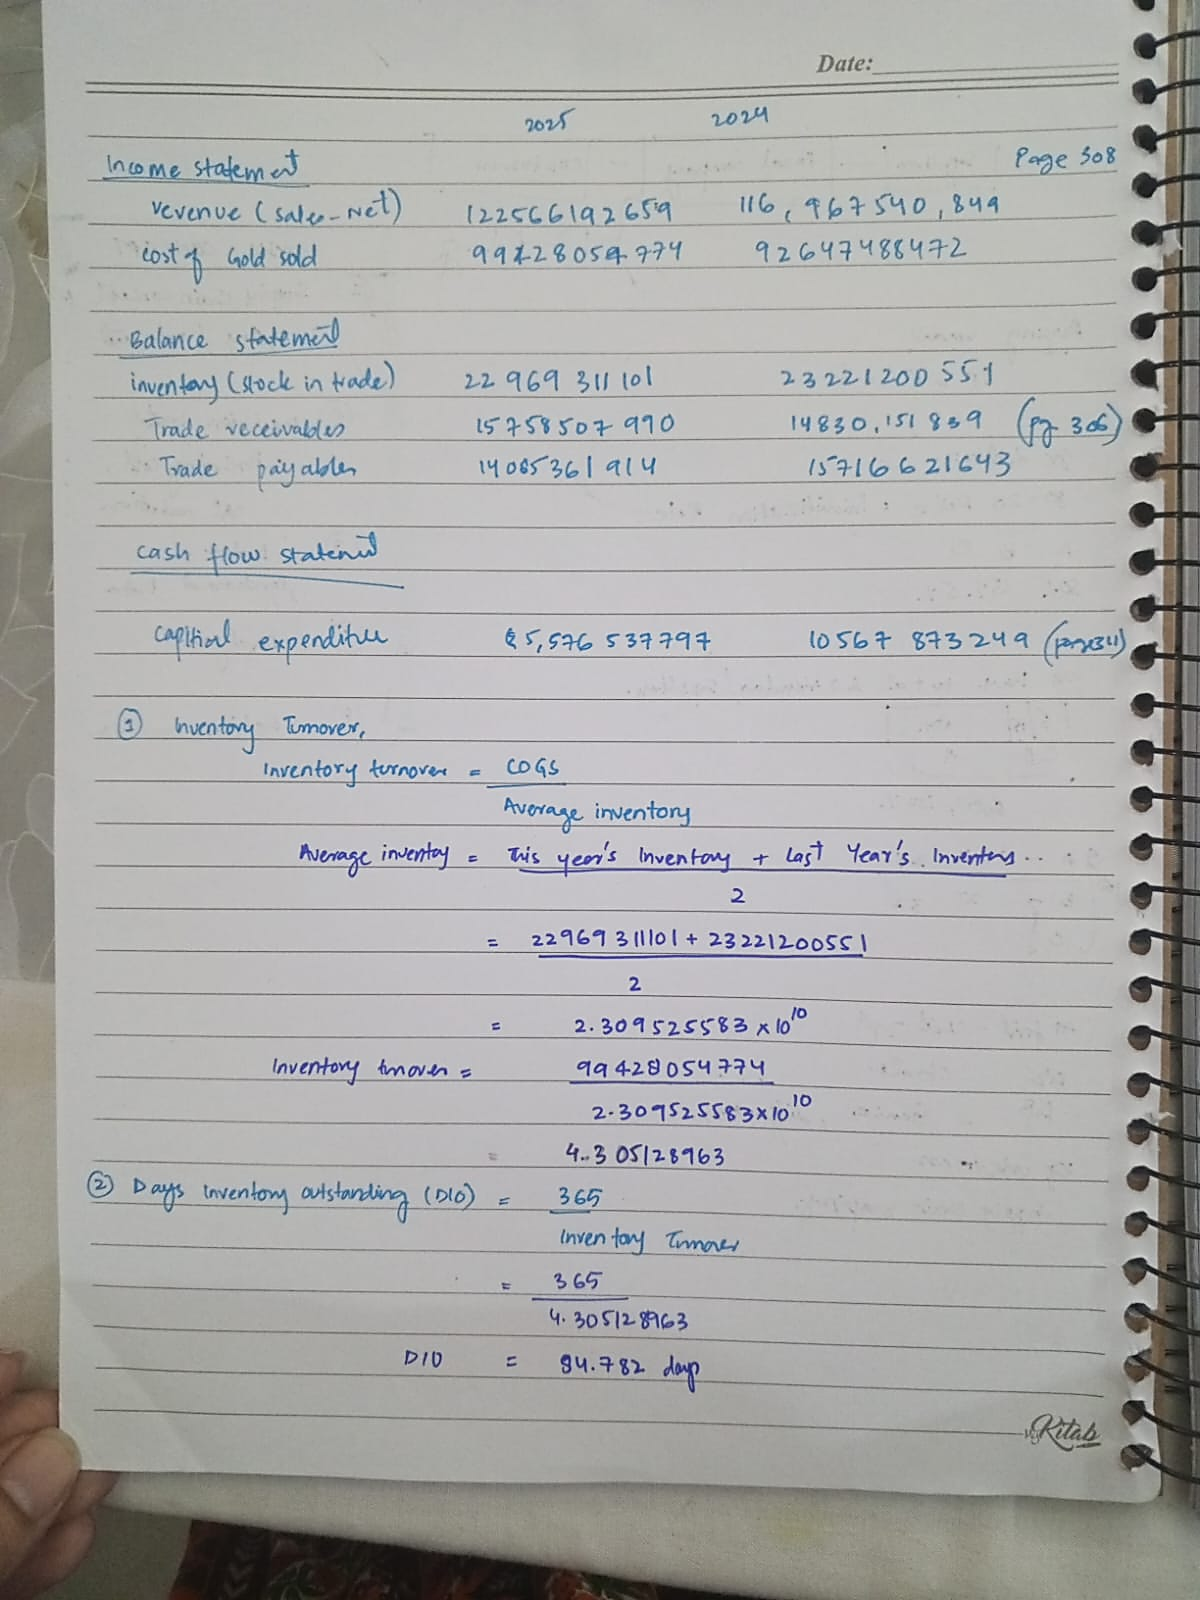 Date:
2025 2024
Income statement Page 308
revenue (sales-Net) 122566192659 116,967540,849
cost of Gold sold 99428054774 92647488472
Balance statement
inventory (stock in trade) 22 969 311 101 23221200551
Trade receivables 15758507 990 14830,151 839 (pg 306)
Trade payables 14085361914 15716621643
cash flow statement
capitial expenditure 5,576 537797 10567 873249 (page 311)
① Inventory Turnover,
Inventory turnover = COGS
Average inventory
Average inventory = This year's Inventory + Last Year's Inventory..
2
= 22969311101 + 23221200551
2
= 2.309525583 x 10^10
Inventory turnover = 99428054774
2.309525583x10^10
= 4.305128963
② Days inventory outstanding (DIO) = 365
Inventory Turnover
= 365
4.305128963
DIO = 84.782 days
My Kitab